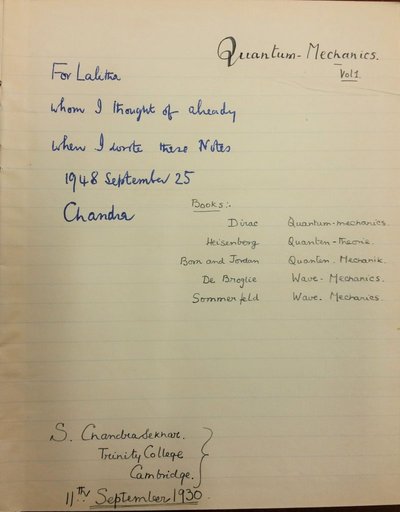 Quantum-Mechanics.
Vol 1.
For Lalitha
whom I thought of already
when I wrote these Notes
1948 September 25
Chandra
Books:.
Dirac Quantum-mechanics.
Heisenberg Quanten-Theorie.
Born and Jordan Quanten. Mechanik.
De Broglie Wave. Mechanics.
Sommerfeld Wave. Mechanics
S. Chandrasekhar.
Trinity College
Cambridge.
11th September 1930.